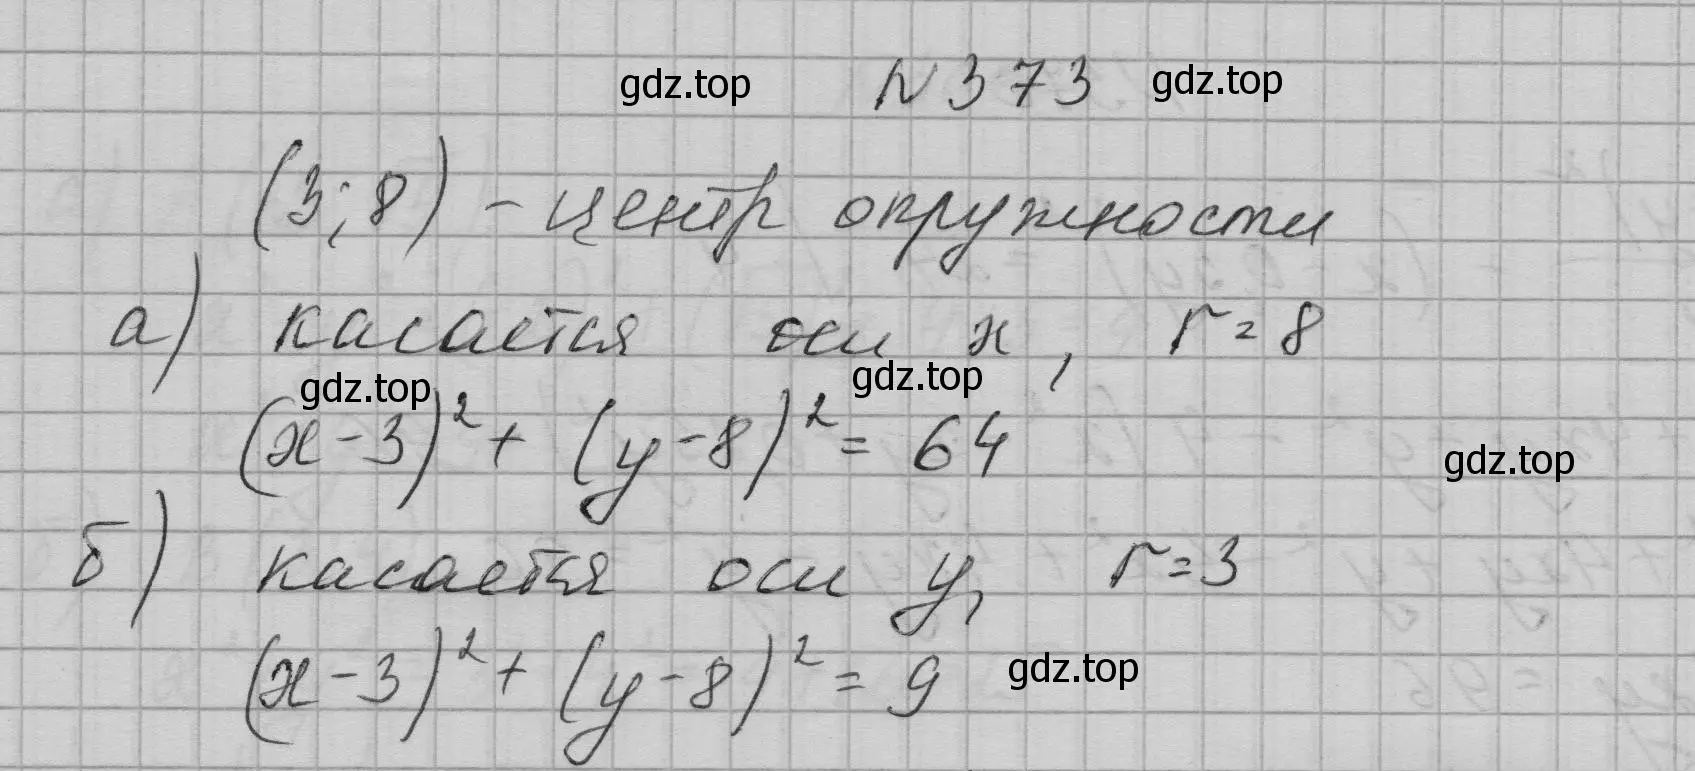 gdz.top N 373 gdz.top
(3; 8) - центр окружности
а) касается оси x, r = 8
gdz.top gdz.top
(x - 3)² + (y - 8)² = 64
gdz.top
б) касается оси y, r = 3
(x - 3)² + (y - 8)² = 9 gdz.top